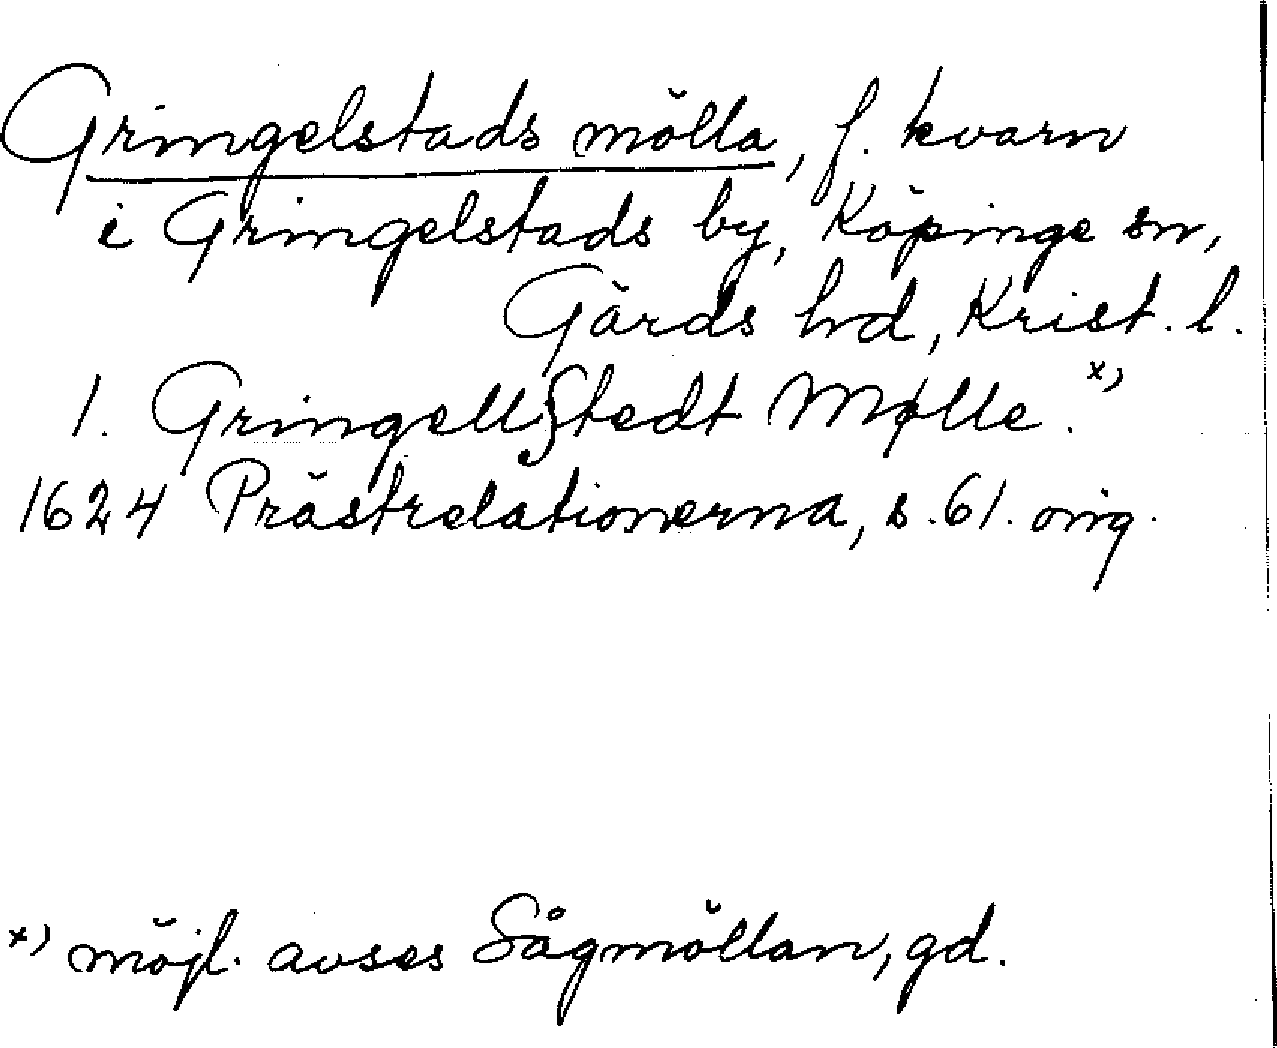 Gringelstads mölla, f. kvarn
i Gringelstads by, Köpinge sn,
Gärds hd, Krist. l.
1. GringellStedt Mølle. x)
1624 Prästrelationerna, s. 61. orig.
x) möjl. avses Sågmöllan, gd.